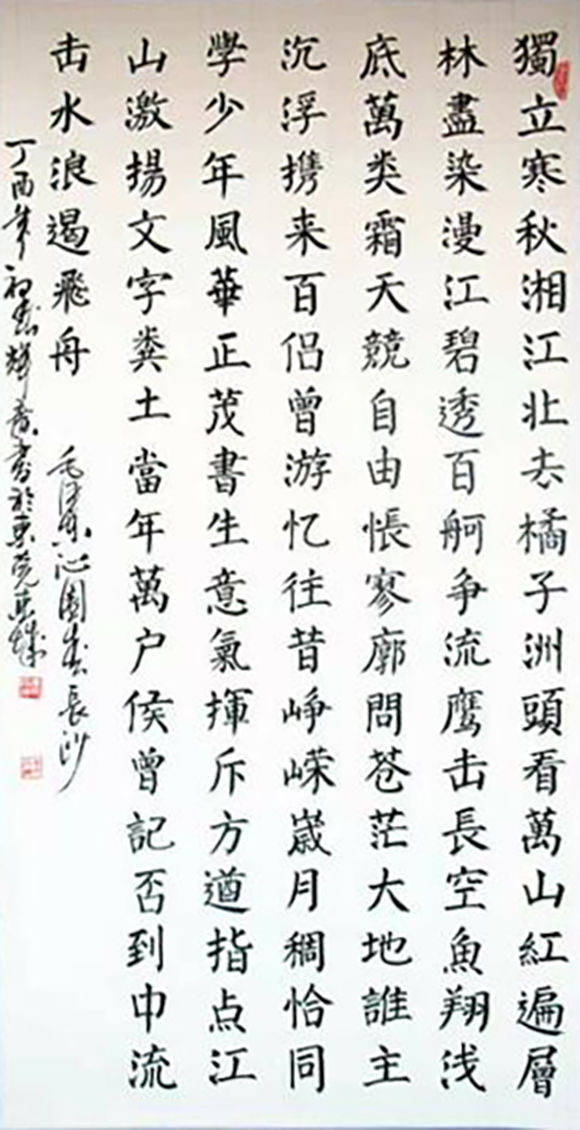 獨立寒秋湘江北去橘子洲頭看萬山紅遍層
林盡染漫江碧透百舸争流鹰击長空魚翔浅
底萬类霜天競自由悵寥廓問苍茫大地誰主
沉浮携来百侣曾游忆往昔峥嵘歲月稠恰同
學少年風華正茂書生意氣揮斥方遒指点江
山激揚文字糞土當年萬户侯曾記否到中流
击水浪遏飛舟 毛泽东沁園春長沙
丁酉年初春輝書於東莞東城